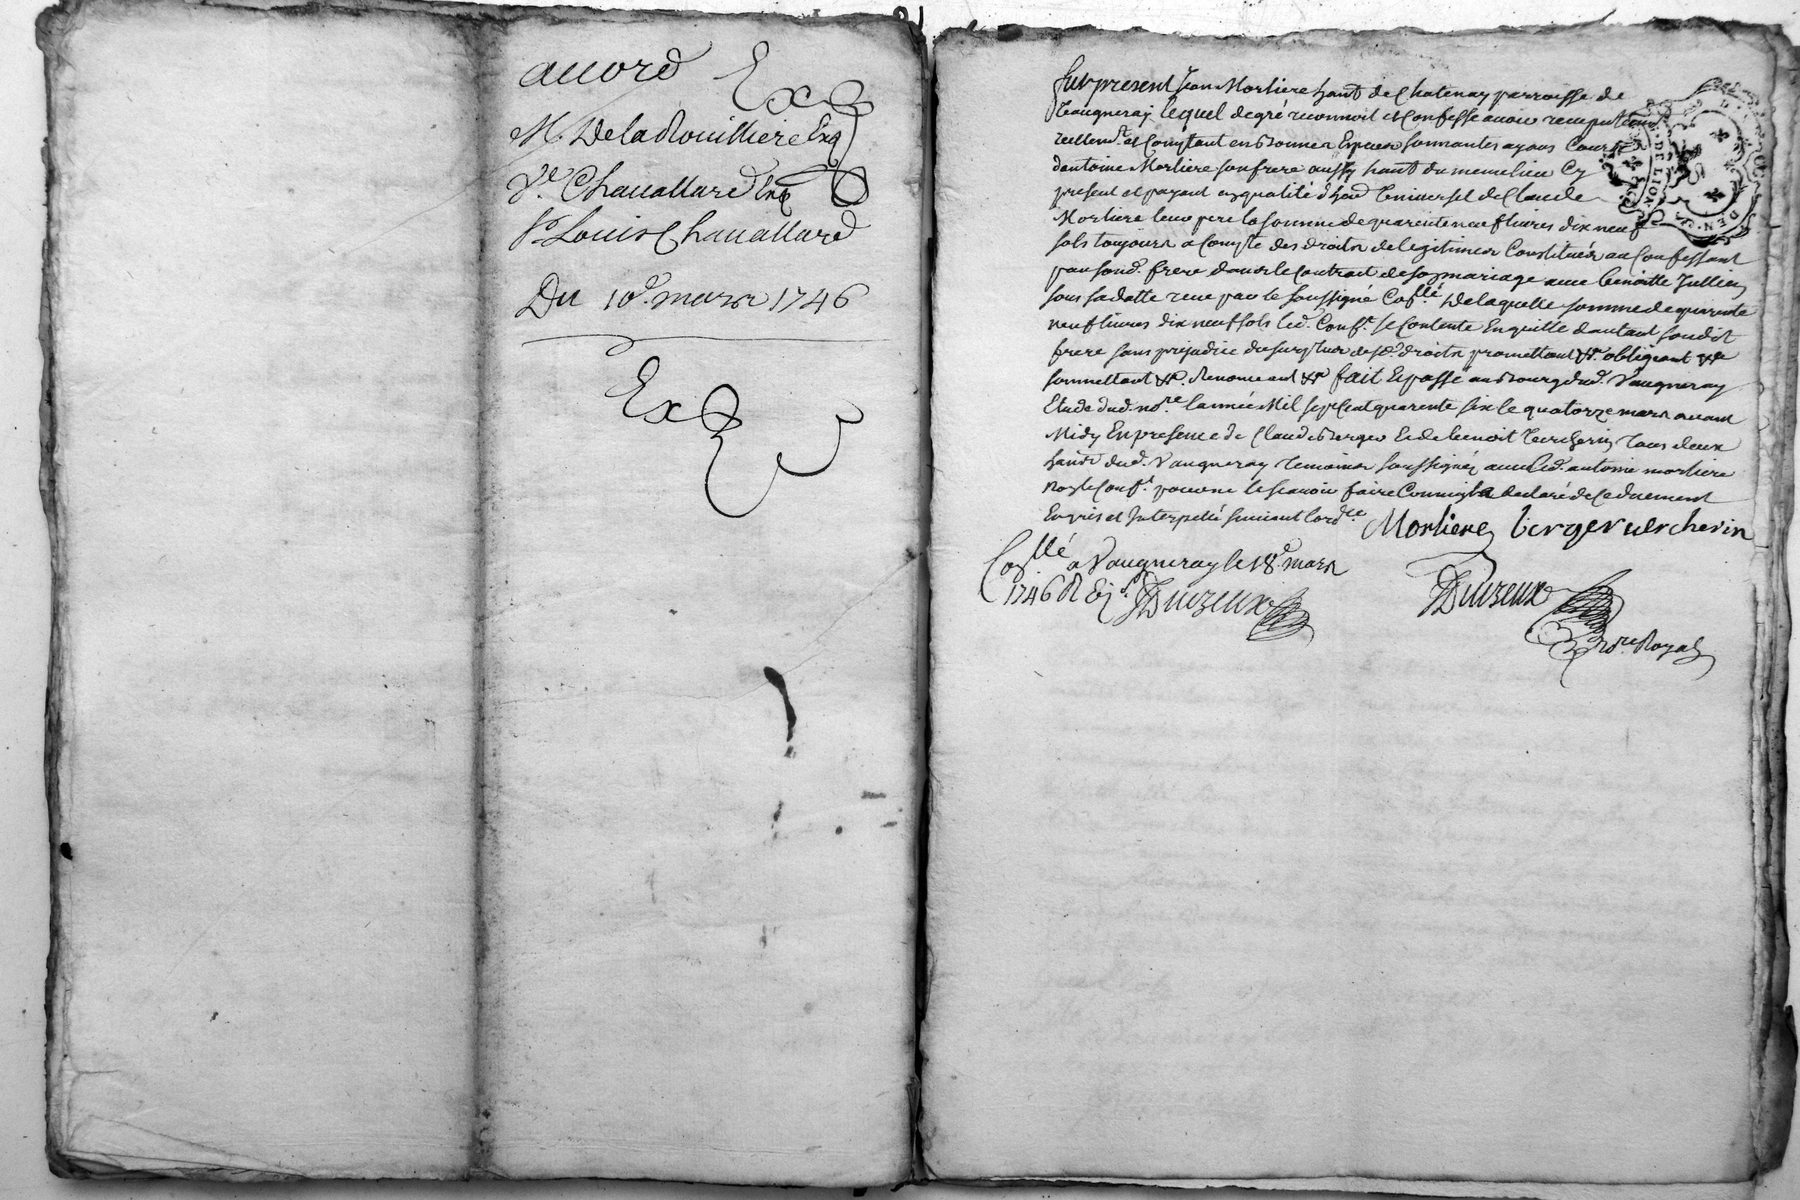 accord Exp
M. Delarouilliere Exp
Sr. Chauallard Exp
Sr. Louis Chauallard
Du 10e. mars 1746
Exp
fut present Jean Morliere hant de Chatenay parroisse de
Vaugneray lequel de gré reconnoit et Confesse auoir reçeu
reellemt. et Comptant en bonnes Especes sonnantes ayans Cours
dantoine Morliere son frere aussy hant du meme lieu Cy
present et payant en qualité d'her. universel de Claude
Morliere leur pere la somme de quarente neuf liures dix neuf
sols toujours a Compte des droits de legitimes Constitués au Confessant
par sond. frere dans le Contract de son mariage auec benoitte Jullien
sous sa datte receu par le soussigné Coll.lé De laquelle somme de quarente
neuf liures dix neuf sols led. Conft. se Contente En quitte dautant sondit
frere sans prejudice du surplus desd. droits promettant &c. obligeant &c
soumettant &c. Renonceant &c fait Et passé au Bourg dud. Vaugneray
Etude dud. nore. lannée Mil sept Cent quarente six le quatorze mars auant
Midy En presence de Claude Berger Et de benoit Vercherin tous deux
hants dud. Vaugneray temoins soussignés auec led. antoine morliere
Non le Conft. pour ne le scauoir faire Comme il a declaré de Ce duement
Enquis et Interpellé suiuant lordce
Morliere berger vercherin
Collé a Vaugneray le 18e. mars
1746 R Duizeux
Duizeux
nore Royal
DE LION